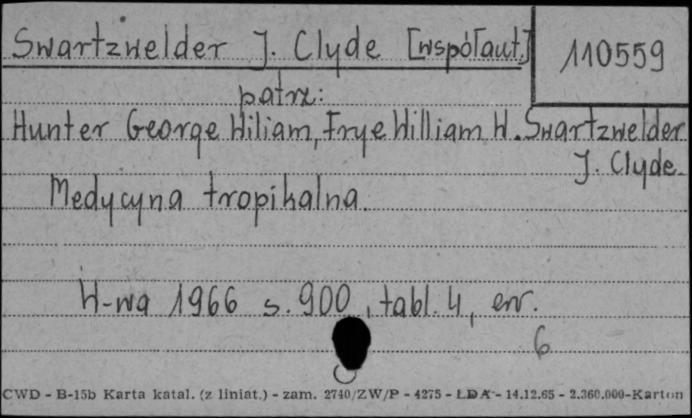 Swartzwelder J. Clyde [współaut.]
110559
patrz:
Hunter George Wiliam, Frye William W. Swartzwelder
J. Clyde.
Medycyna tropikalna.
W-wa 1966 s. 900, tabl. 4, err.
6
CWD - B-15b Karta katal. (z liniat.) - zam. 2740/ZW/P - 4275 - ŁDA - 14.12.65 - 2.360.000-Karton